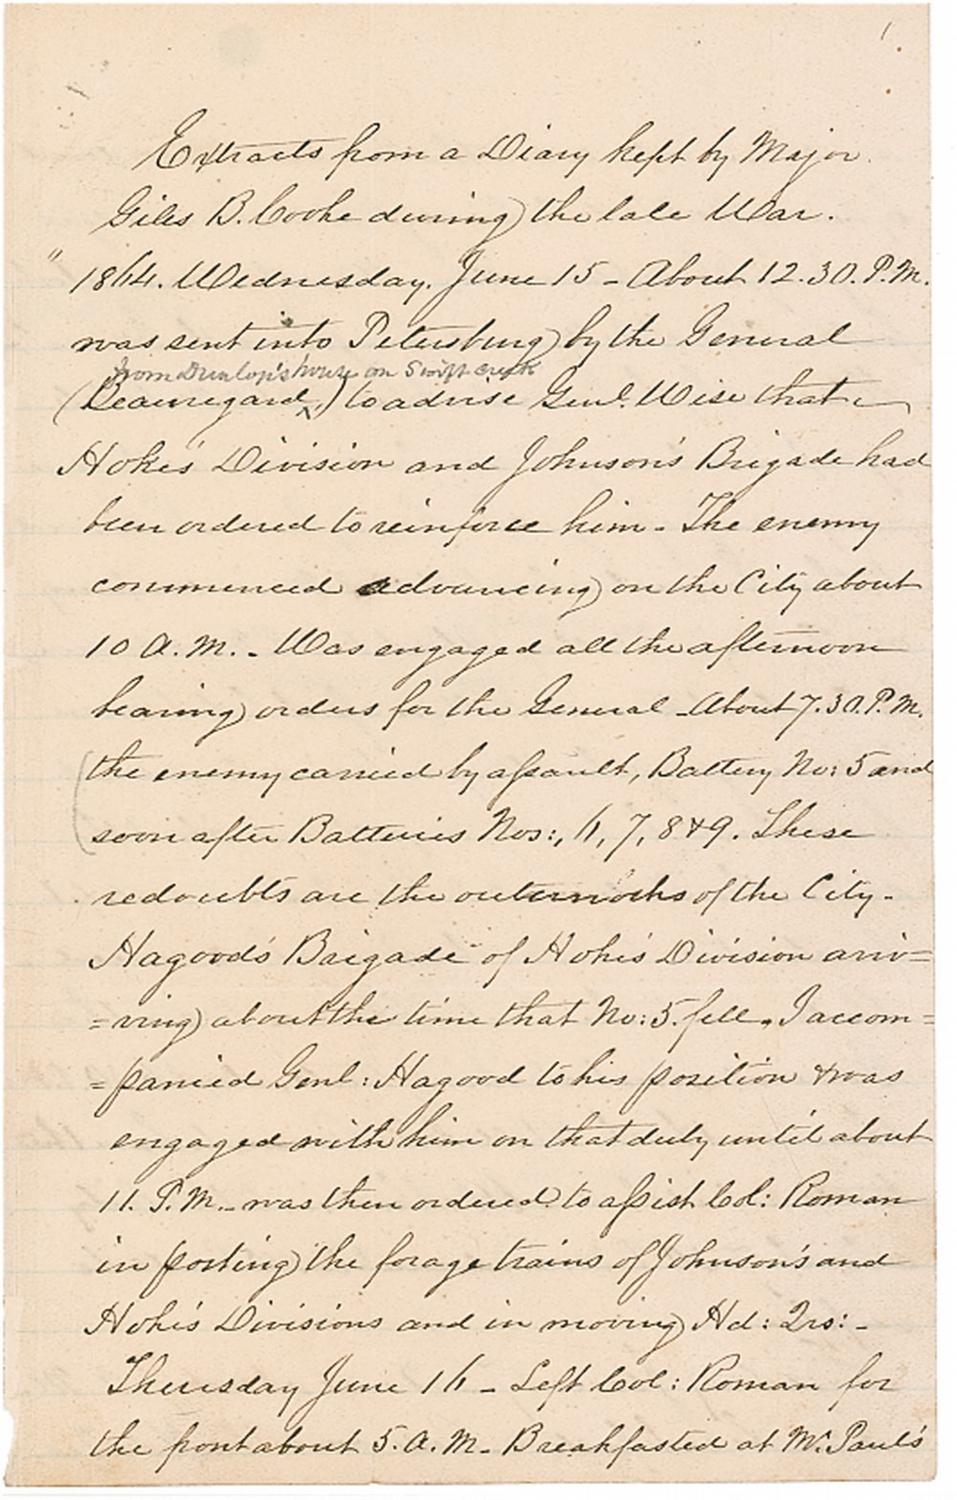 1
Extracts from a Diary kept by Major
Giles B. Cooke during the late War.
"1864. Wednesday, June 15 - About 12.30. P.M.
was sent into Petersburg by the General
from Dunlop's house on Swift creek
(Beauregard^,) to advise Genl. Wise that
Hoke's Division and Johnson's Brigade had
been ordered to reinforce him - The enemy
commenced advancing on the City about
10 A.M. - Was engaged all the afternoon
bearing orders for the General - About 7.30. P.M.
the enemy carried by assault, Battery No: 5 and
soon after Batteries Nos:, 6, 7, 8 & 9. These
redoubts are the outerworks of the City -
Hagood's Brigade of Hoke's Division arriv=
=ving about the time that No: 5. fell. I accom=
=panied Genl: Hagood to his position & was
engaged with him on that duty until about
11. P.M. - was then ordered to assist Col: Roman
in posting the forage trains of Johnson's and
Hoke's Divisions and in moving Hd: Qrs: -
Thursday June 16 - Left Col: Roman for
the front about 5. A.M. - Breakfasted at Mr. Paul's